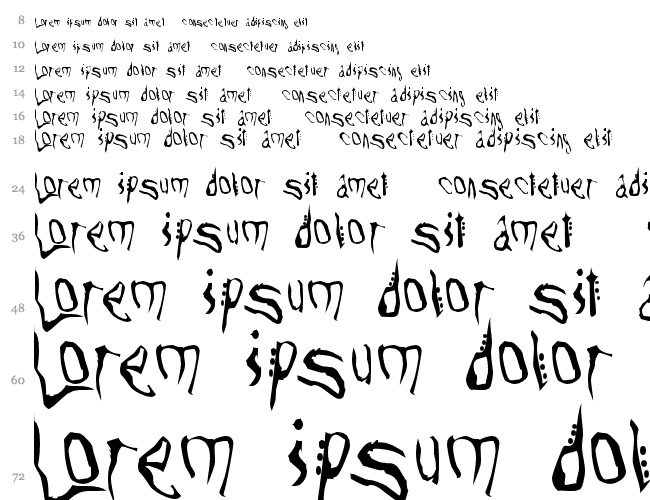 8 Lorem ipsum dolor sit amet consectetuer adipiscing elit
10 Lorem ipsum dolor sit amet consectetuer adipiscing elit
12 Lorem ipsum dolor sit amet consectetuer adipiscing elit
14 Lorem ipsum dolor sit amet consectetuer adipiscing elit
16 Lorem ipsum dolor sit amet consectetuer adipiscing elit
18 Lorem ipsum dolor sit amet consectetuer adipiscing elit
24 Lorem ipsum dolor sit amet consectetuer adis
36 Lorem ipsum dolor sit amet
48 Lorem ipsum dolor sit
60 Lorem ipsum dolor
72 Lorem ipsum dol